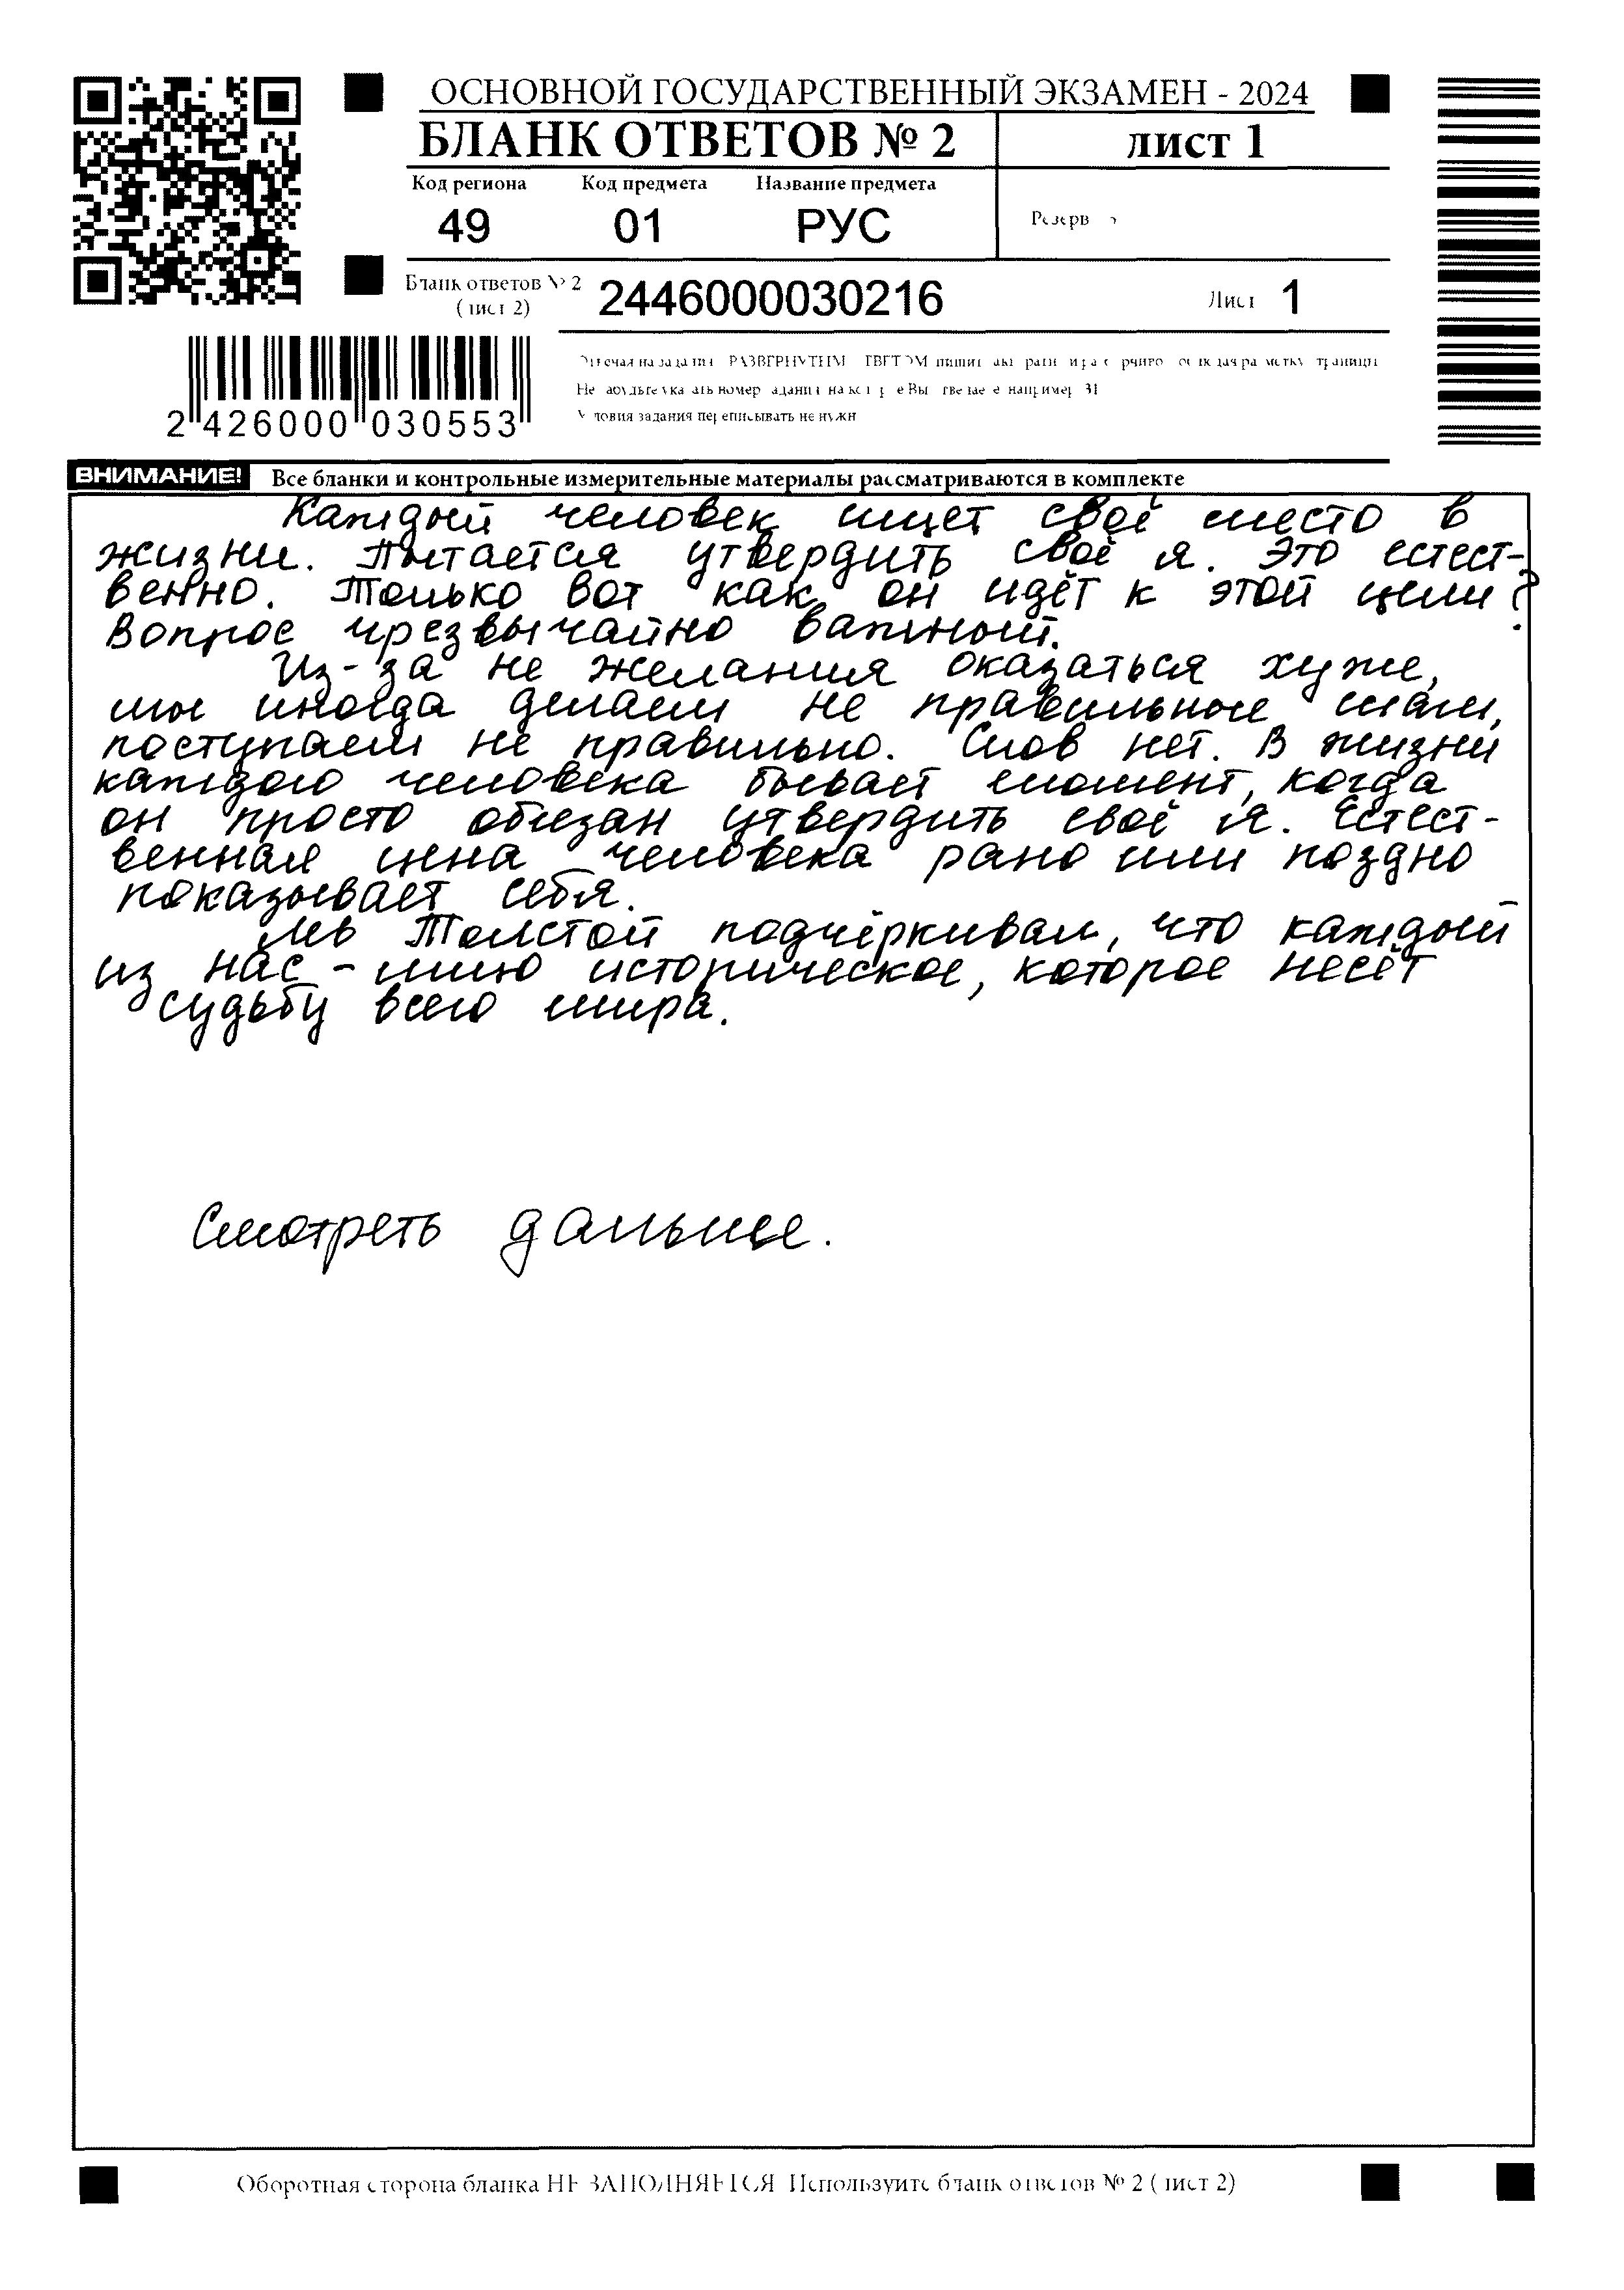 ОСНОВНОЙ ГОСУДАРСТВЕННЫЙ ЭКЗАМЕН - 2024
БЛАНК ОТВЕТОВ № 2
лист 1
Код региона Код предмета Название предмета
49 01 РУС
Резерв
Бланк ответов № 2
(лист 2)
2446000030216
Лист 1
2 426000 030553
Условия задания переписывать не нужн
ВНИМАНИЕ! Все бланки и контрольные измерительные материалы рассматриваются в комплекте
Каждый человек ищет своё место в
жизни. Пытается утвердить своё я. Это естест-
венно. Только вот как он идёт к этой цели?
Вопрос чрезвычайно важный.
Из-за не желания оказаться хуже,
мы иногда делаем не правильные шаги,
поступаем не правильно. Слов нет. В жизни
каждого человека бывает момент, когда
он просто обязан утвердить своё я. Естест-
венная цена человека рано или поздно
показывает себя.
Лев Толстой подчёркивал, что каждый
из нас - историческое, которое несёт
судьбу всего мира.
Смотреть дальше.
Оборотная сторона бланка НЕ ЗАПОЛНЯЕТСЯ Используйте бланк ответов № 2 (лист 2)